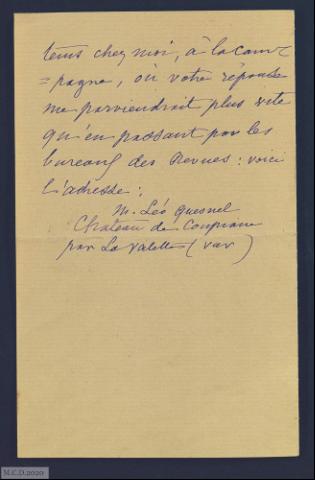 tems chez moi, à la cam-
=pagne, où votre réponse
me parviendrait plus vite
qu'en passant par les
bureaux des Revues : voici
l'adresse :
M. Léo Quesnel
Chateau de Coupiane
par La Valette (Var)
M.C.D.2020